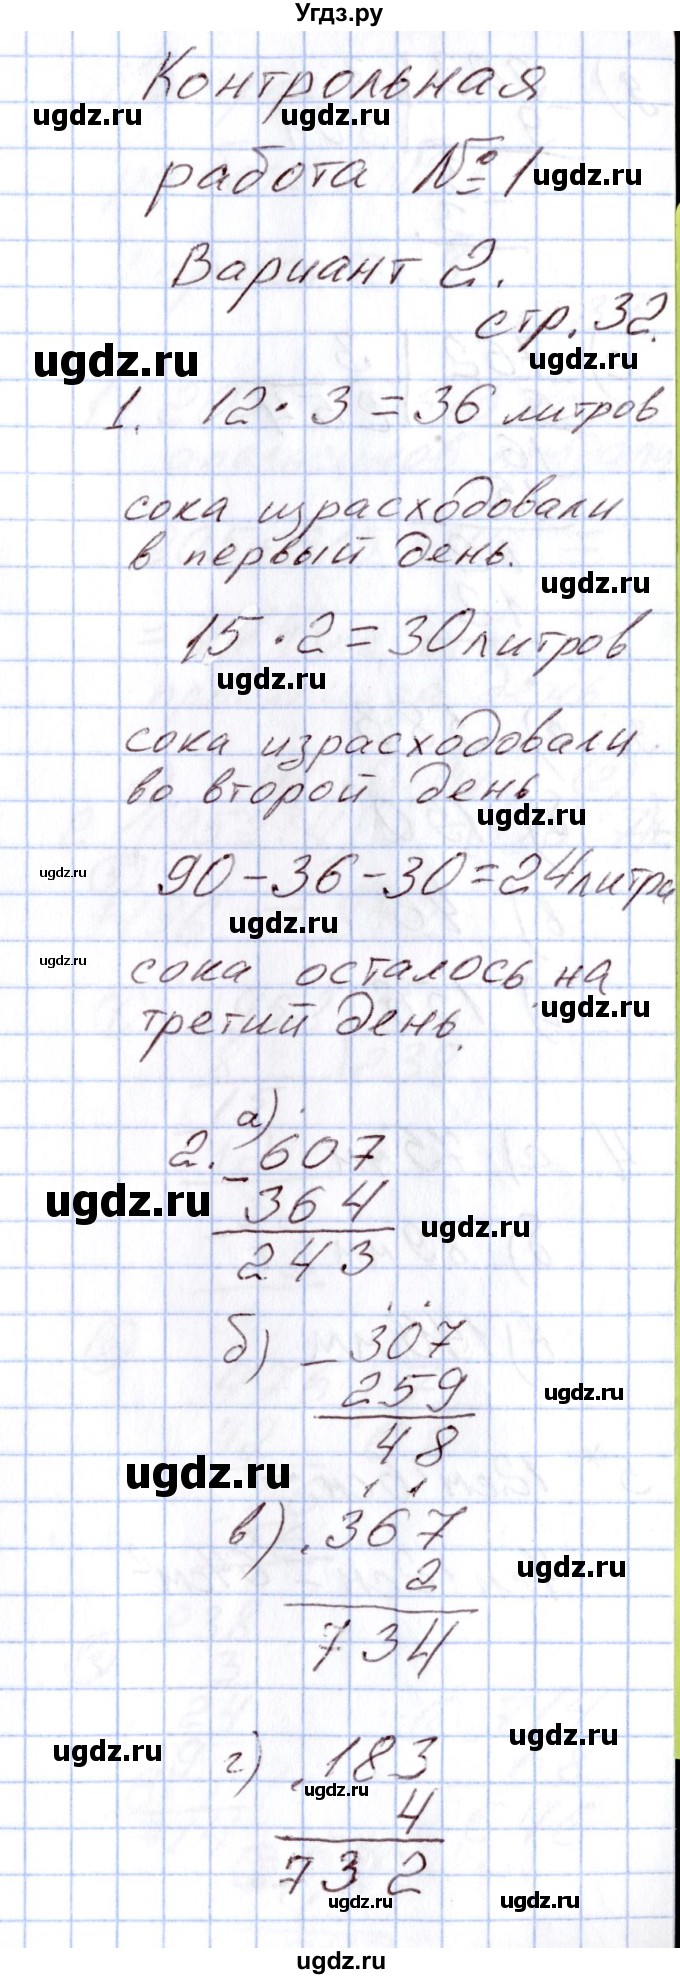 Угдз.ру
Контрольная
ugdz.ru ugdz.ru
работа №1
ugdz.ru
Вариант 2.
стр. 32.
ugdz.ru ugdz.ru
1. 12 · 3 = 36 литров
сока израсходовали
в первый день.
ugdz.ru
15 · 2 = 30 литров
ugdz.ru
сока израсходовали
во второй день
ugdz.ru
90 - 36 - 30 = 24 литра
ugdz.ru
ugdz.ru
ugdz.ru
сока осталось на
ugdz.ru
третий день.
а)
2. - 607
ugdz.ru
364
ugdz.ru
243
б) - 307
259
ugdz.ru
48
ugdz.ru
1 1
в) . 367
2
ugdz.ru
734
ugdz.ru
ugdz.ru
г) . 183
ugdz.ru
4
732
ugdz.ru ugdz.ru
ugdz.ru